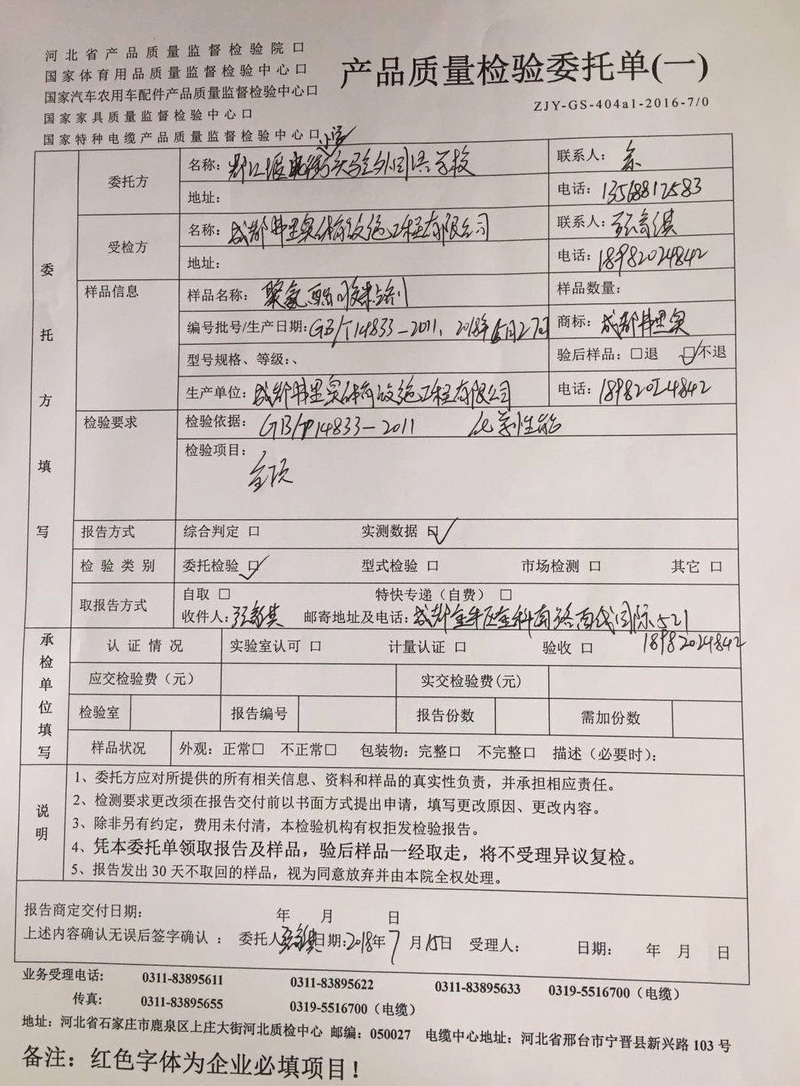 河北省产品质量监督检验院 口
国家体育用品质量监督检验中心 口
国家汽车农用车配件产品质量监督检验中心 口
国家家具质量监督检验中心 口
国家特种电缆产品质量监督检验中心 口
产品质量检验委托单(一)
ZJY-GS-404a1-2016-7/0
委托方填写
委托方
名称：外国语学校
小学
联系人：
地址：
电话：13568812583
受检方
名称：成都弗里奥体育设施工程有限公司
联系人：
地址：
电话：18982024842
样品信息
样品名称：聚氨酯
样品数量：
编号批号/生产日期：GB/T14833-2011、2018年6月27日
商标：成都弗里奥
型号规格、等级：、
验后样品：□退 □不退
生产单位：成都弗里奥体育设施工程有限公司
电话：18982024842
检验要求
检验依据：GB/T14833-2011 化学性能
检验项目：
全项
报告方式
综合判定 口
实测数据 口
检验类别
委托检验 口
型式检验 口
市场检测 口
其它 口
取报告方式
自取 口
特快专递（自费） 口
收件人： 邮寄地址及电话：成都金牛区金科南路国际521
18982024842
承检单位填写
认证情况
实验室认可 口
计量认证 口
验收 口
应交检验费（元）
实交检验费(元)
检验室
报告编号
报告份数
需加份数
样品状况
外观：正常口 不正常口 包装物：完整口 不完整口 描述（必要时）：
说明
1、委托方应对所提供的所有相关信息、资料和样品的真实性负责，并承担相应责任。
2、检测要求更改须在报告交付前以书面方式提出申请，填写更改原因、更改内容。
3、除非另有约定，费用未付清，本检验机构有权拒发检验报告。
4、凭本委托单领取报告及样品，验后样品一经取走，将不受理异议复检。
5、报告发出30天不取回的样品，视为同意放弃并由本院全权处理。
报告商定交付日期： 年 月 日
上述内容确认无误后签字确认： 委托人 日期：2018年7月15日 受理人： 日期： 年 月 日
业务受理电话： 0311-83895611 0311-83895622 0311-83895633 0319-5516700（电缆）
传真： 0311-83895655 0319-5516700（电缆）
地址：河北省石家庄市鹿泉区上庄大街河北质检中心 邮编：050027 电缆中心地址：河北省邢台市宁晋县新兴路103号
备注：红色字体为企业必填项目！